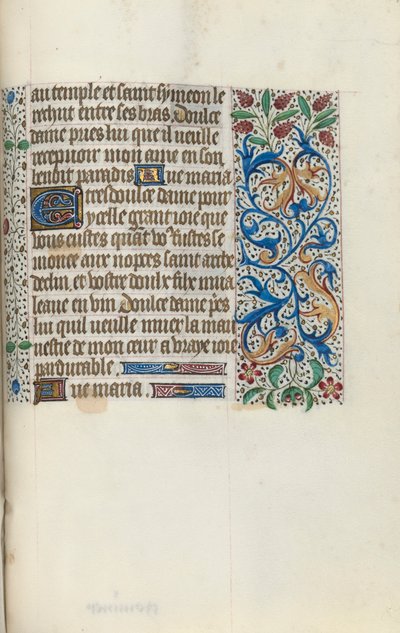 au temple et saint symeon le
rechut entre ses bras. Doulce
dame pries lui que il veulle
recepuoir mon ame en son
benoit paradis Aue maria
Tresdoulce dame pour
ycelle grant ioie que
vous eustes quãt vo⁹ fustes se
monce aux nopces saint arche
declin et vostre doulx filx mua
leaue en vin Doulce dame p̃es
lui quil veulle muer la mau
uestie de mon cœur a vraye ioie
pardurable.
Aue maria.